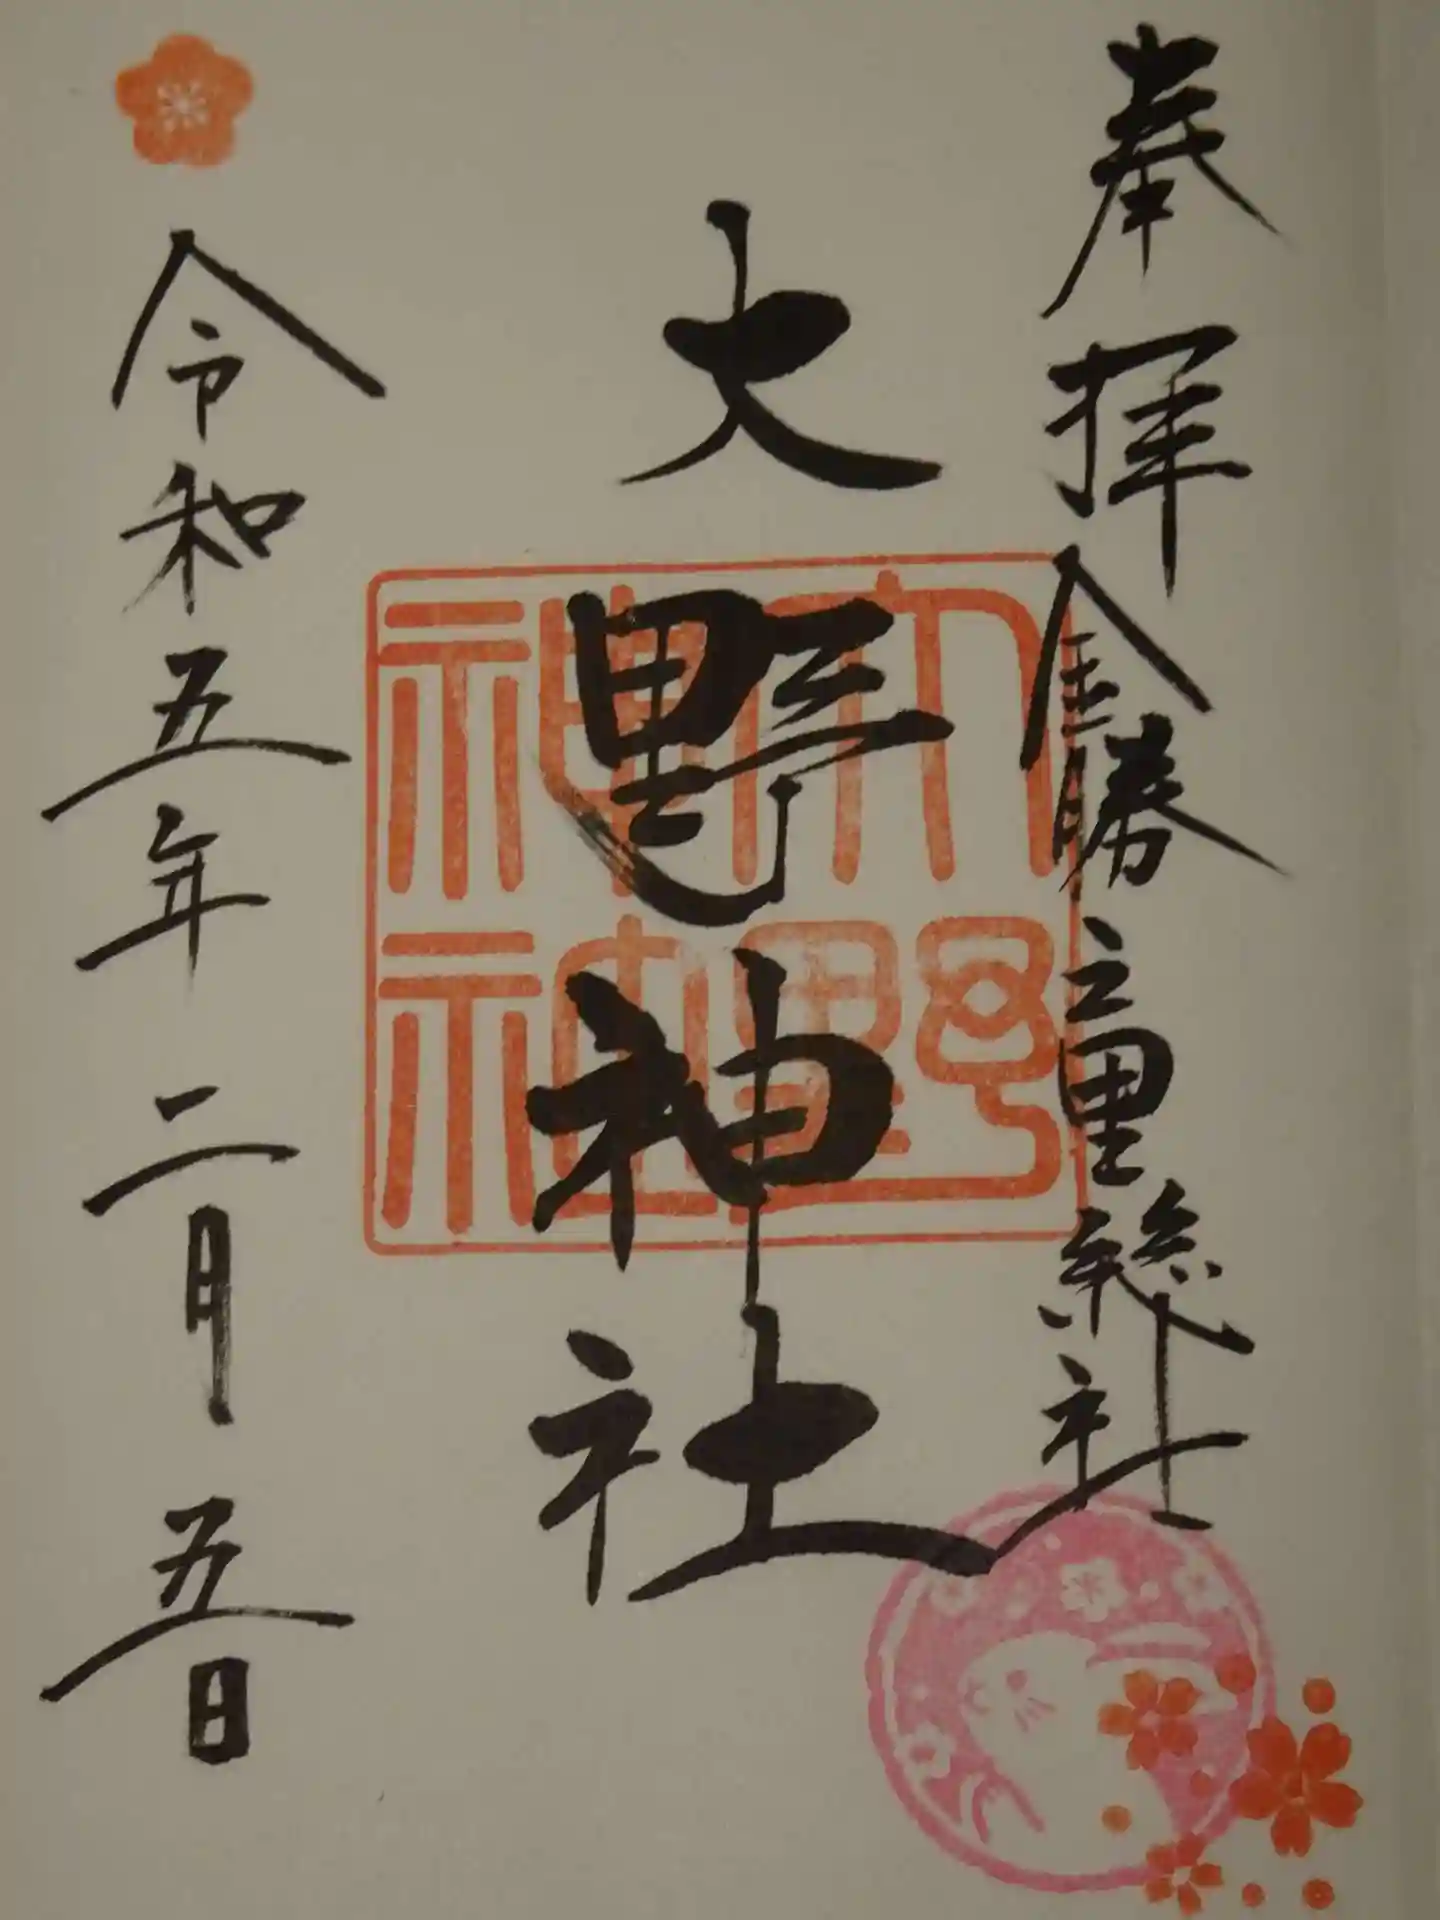 奉拝
金勝之里總社
大野神社
大野神社
令和五年二月五日